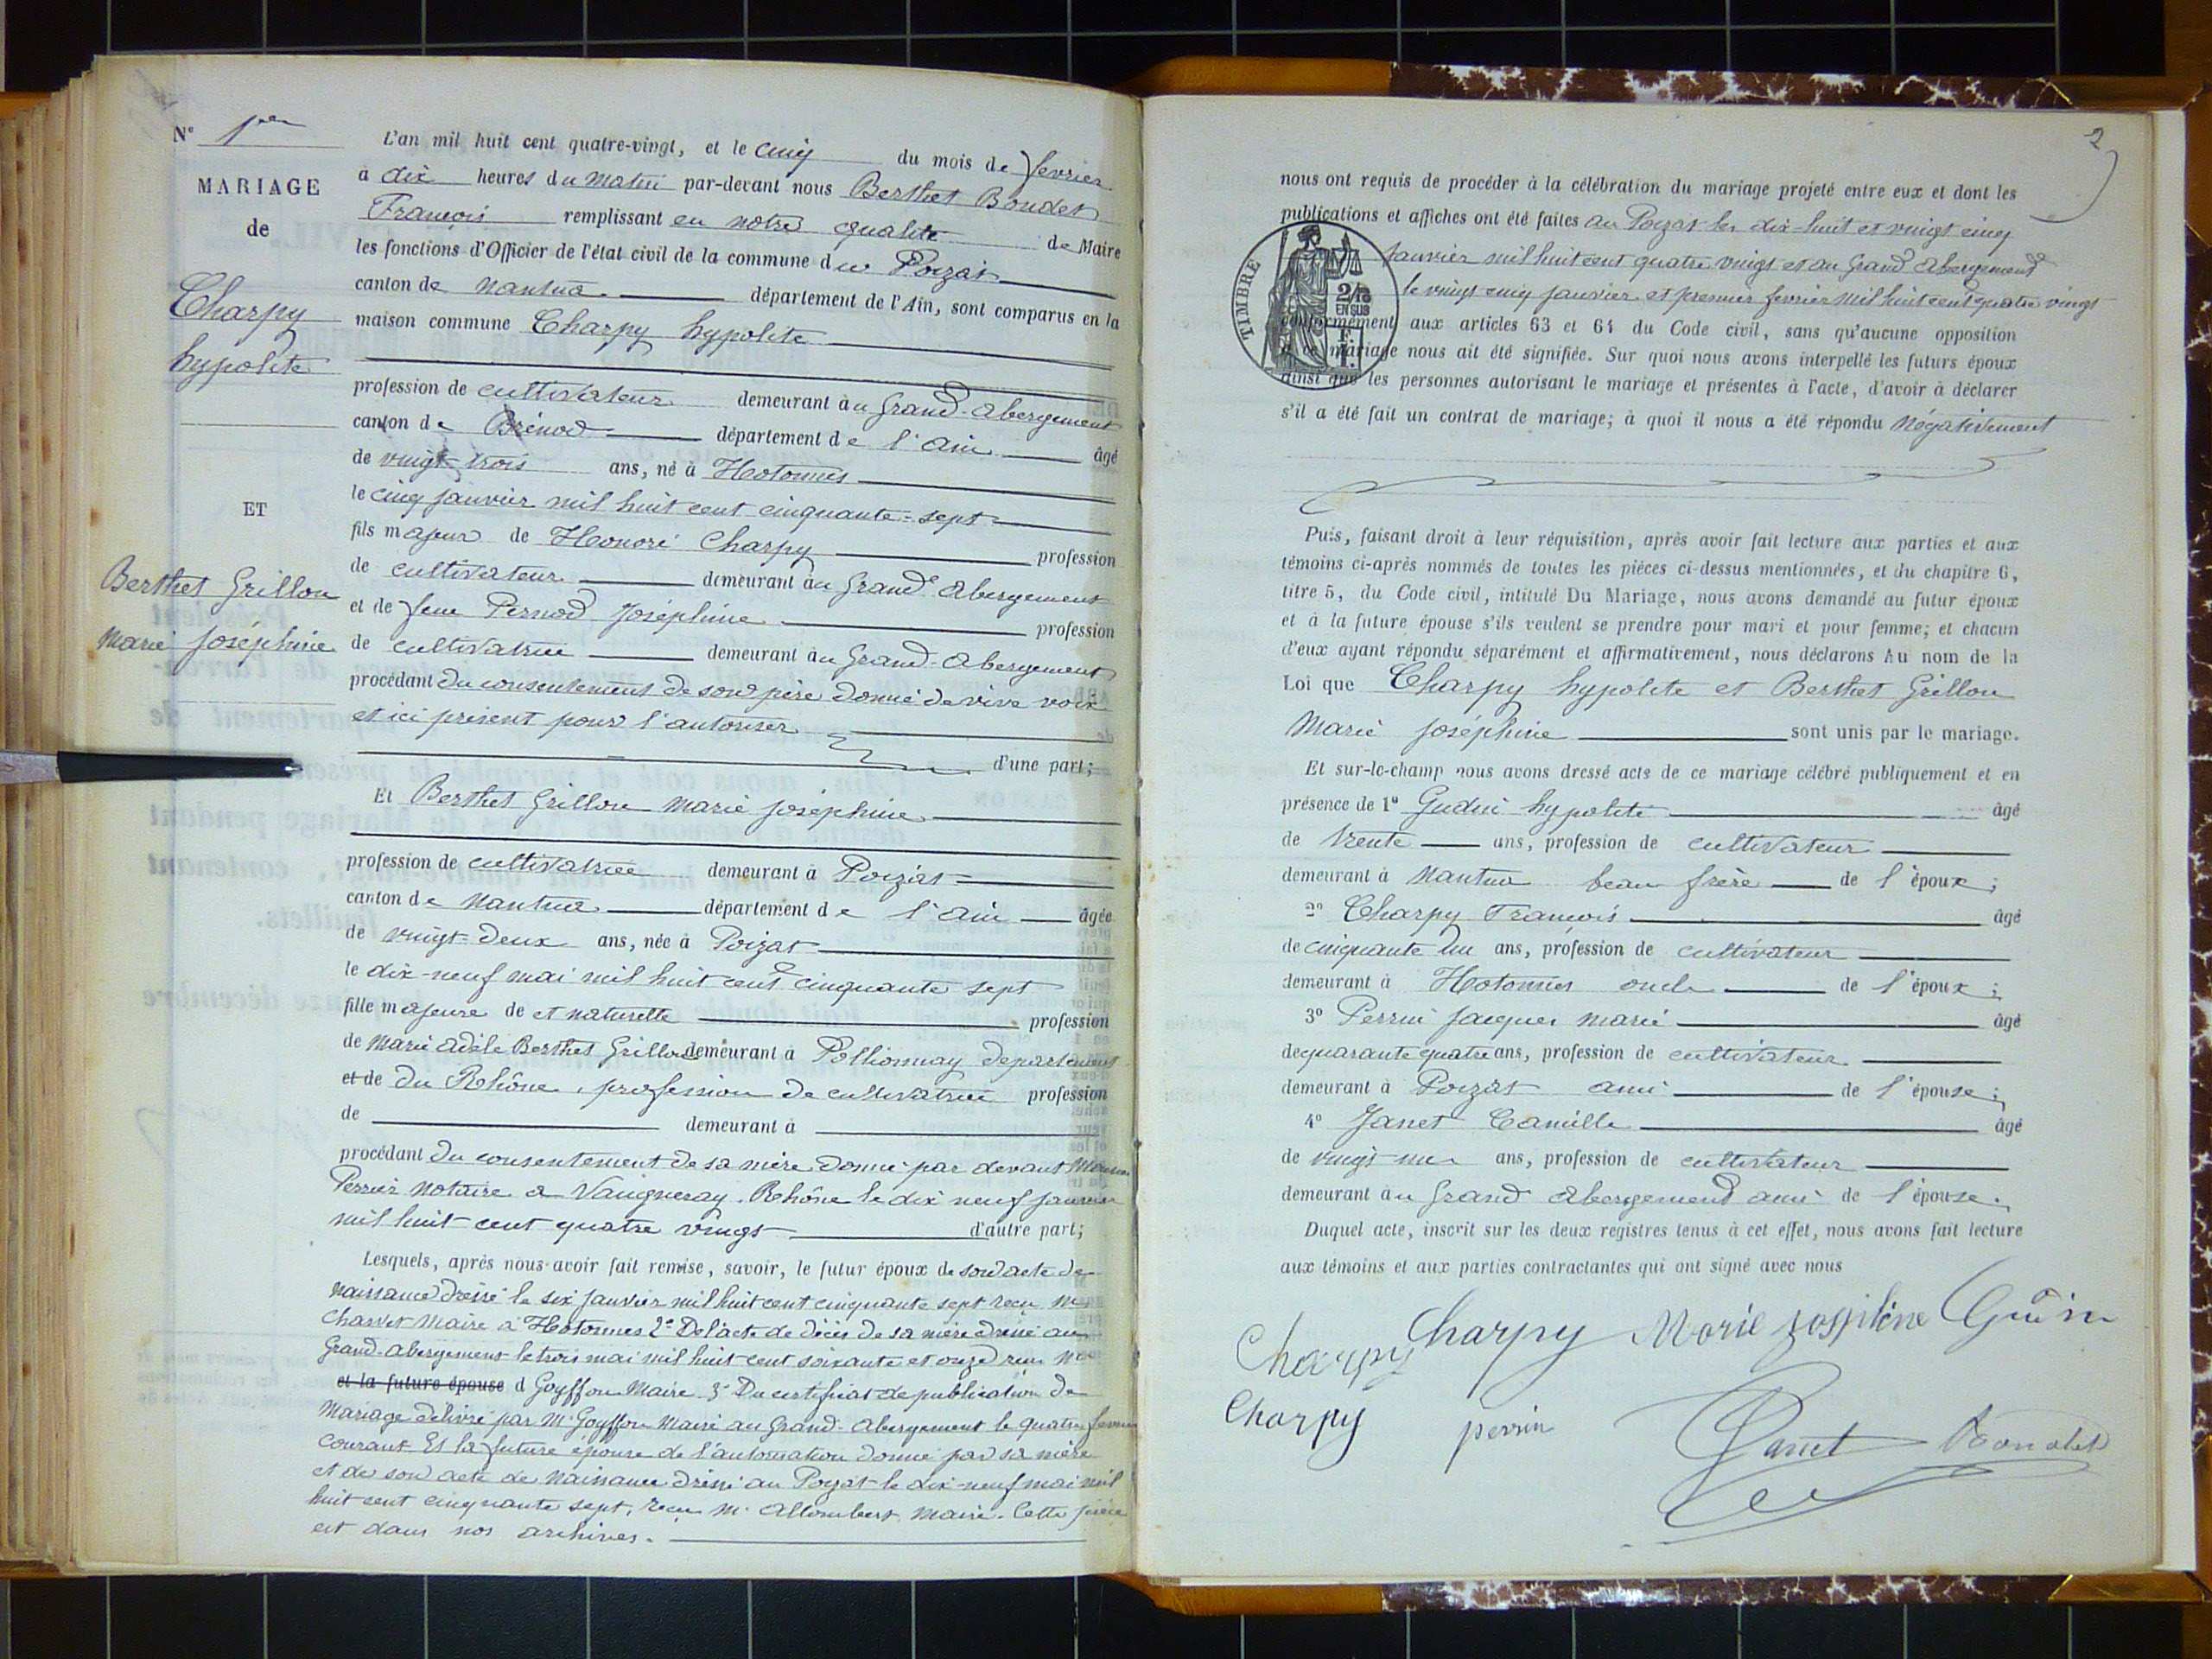 N° 1er
MARIAGE
de
Charpy
hypolite
ET
Berthet Grillon
Marie Joséphine
L'an mil huit cent quatre-vingt, et le cinq du mois de fevrier
à dix heures du matin par-devant nous Berthet Bondet
François remplissant en notre qualité de Maire
les fonctions d'Officier de l'état civil de la commune du Poizat
canton de Nantua département de l'Ain, sont comparus en la
maison commune Charpy hypolite
profession de cultivateur demeurant au Grand-abergement
canton de Brénod département de l'ain âgé
de vingt-trois ans, né à Hotonnes
le cinq janvier mil huit cent cinquante-sept
fils majeur de Honoré Charpy profession
de cultivateur demeurant au Grand-abergement
et de feue Pernod Joséphine profession
de cultivatrice demeurant au Grand-abergement
procédant du consentement de son père donné de vive voix
et ici présent pour l'autoriser
d'une part;
Et Berthet Grillon Marie Joséphine
profession de cultivatrice demeurant à Poizat
canton de Nantua département de l'ain âgée
de vingt-deux ans, née à Poizat
le dix-neuf mai mil huit cent cinquante sept
fille majeure de et naturelle profession
de Marie adèle Berthet Grillon demeurant à Pollionnay departement
et de du Rhône, profession de cultivatrice profession
de demeurant à
procédant du consentement de sa mère donné par devant
Perrier Notaire a Vaugneray, Rhône le dix neuf janvier
mil huit cent quatre vingt d'autre part;
Lesquels, après nous avoir fait remise, savoir, le futur époux de son acte de
naissance dréssé le six janvier mil huit cent cinquante sept reçu M.
Charvet Maire à Hotonnes 2° De l'acte de décès de sa mère dréssé au
Grand-abergement le trois mai mil huit cent soixante et onze reçu M
et la future épouse d Goyffon Maire 3° Du certificat de publication de
Mariage délivré par M. Goyffon Maire au Grand-abergement le quatre fevrier
courant Et la future épouse de l'autorisation donné par sa mère
et de son acte de Naissance dréssé au Poizat le dix-neuf mai mil
huit cent cinquante sept, reçu M. Allombert, Maire. Cette pièce
est dans nos archives.
2
nous ont requis de procéder à la célébration du mariage projeté entre eux et dont les
publications et affiches ont été faites au Poizat les dix-huit et vingt cinq
Janvier mil huit cent quatre vingt et au Grand abergement
le vingt cinq janvier et premier fevrier mil huit cent quatre vingt
TIMBRE
2/10
EN SUS
conformément aux articles 63 et 64 du Code civil, sans qu'aucune opposition
à ce mariage nous ait été signifiée. Sur quoi nous avons interpellé les futurs époux
ainsi que les personnes autorisant le mariage et présentes à l'acte, d'avoir à déclarer
s'il a été fait un contrat de mariage; à quoi il nous a été répondu Négativement
Puis, faisant droit à leur réquisition, après avoir fait lecture aux parties et aux
témoins ci-après nommés de toutes les pièces ci-dessus mentionnées, et du chapitre 6,
titre 5, du Code civil, intitulé Du Mariage, nous avons demandé au futur époux
et à la future épouse s'ils veulent se prendre pour mari et pour femme; et chacun
d'eux ayant répondu séparément et affirmativement, nous déclarons Au nom de la
Loi que Charpy hypolite et Berthet Grillon
Marie Joséphine sont unis par le mariage.
Et sur-le-champ nous avons dressé acte de ce mariage célébré publiquement et en
présence de 1° Gudin hypolite âgé
de trente ans, profession de cultivateur
demeurant à Nantua beau frère de l'époux;
2° Charpy François âgé
de cinquante un ans, profession de cultivateur
demeurant à Hotonnes oncle de l'époux;
3° Perrin Jacques Marie âgé
de quarante quatre ans, profession de cultivateur
demeurant à Poizat ami de l'épouse;
4° Janet Camille âgé
de vingt-un ans, profession de cultivateur
demeurant au Grand abergement ami de l'épouse.
Duquel acte, inscrit sur les deux registres tenus à cet effet, nous avons fait lecture
aux témoins et aux parties contractantes qui ont signé avec nous
Charpy Charpy Marie Gudin
Charpy perrin Janet Bondet